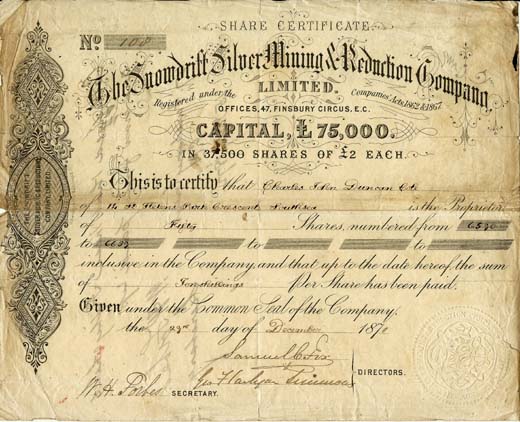 SHARE CERTIFICATE.
No 108
The Snowdrift Silver Mining & Reduction Company,
LIMITED.
Registered under the Companies' Acts, 1862 & 1867
OFFICES, 47, FINSBURY CIRCUS, E.C.
CAPITAL, £ 75,000.
IN 37,500 SHARES OF £2 EACH.
This is to certify that Charles John Duncan
of 14 St Helens Park Crescent Southsea is the Proprietor
of Fifty Shares, numbered from
to to to to
inclusive in the Company, and that up to the date hereof the sum
of Forty shillings Per Share has been paid.
Given under the Common Seal of the Company.
the 23rd day of December 187
Samuel
DIRECTORS.
W. H. Forbes SECRETARY.
THE SNOWDRIFT
SILVER MINING
& REDUCTION
COMPANY LIMITED